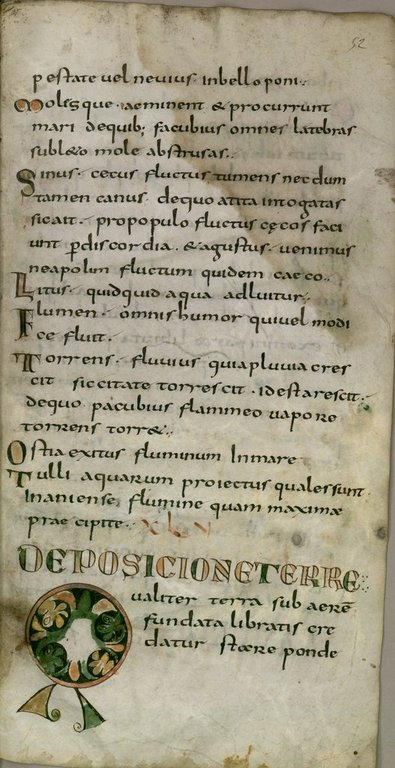 52
pestate uel neuius in bello poni.
Moles que aeminent & procurrunt
mari dequib; facubius omnes latebras
subl&o mole abstrusas.
Sinus cecus fluctus tumens necdum
tamen canus dequo atita intogatas
sicait propopulo fluctus cęcos faci
unt pdiscordia & agustus uenimus
neapolim fluctum quidem caeco
Litus quidquid aqua adluitur
Flumen omnis humor qui uel modi
ce fluit
Torrens fluuius quia pluuia cres
cit siccitate torrescit id est arescit
dequo pacubius flamineo uapore
torrens torr&
Ostia exitus fluminum In mare
Tulli aquarum proiectus quales sunt
In aniense flumine quam maximæ
prae cipite XLV
DE POSICIONE TERRE
Qualiter terra sub aere
fundata libratis cre
datur stare ponde